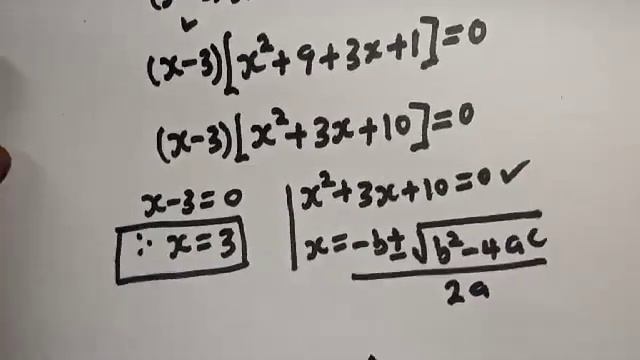 (x-3)[x²+9+3x+1]=0
(x-3)[x²+3x+10]=0
x-3=0
∴ x=3
x²+3x+10=0 ✓
x = -b±√b²-4ac
2a